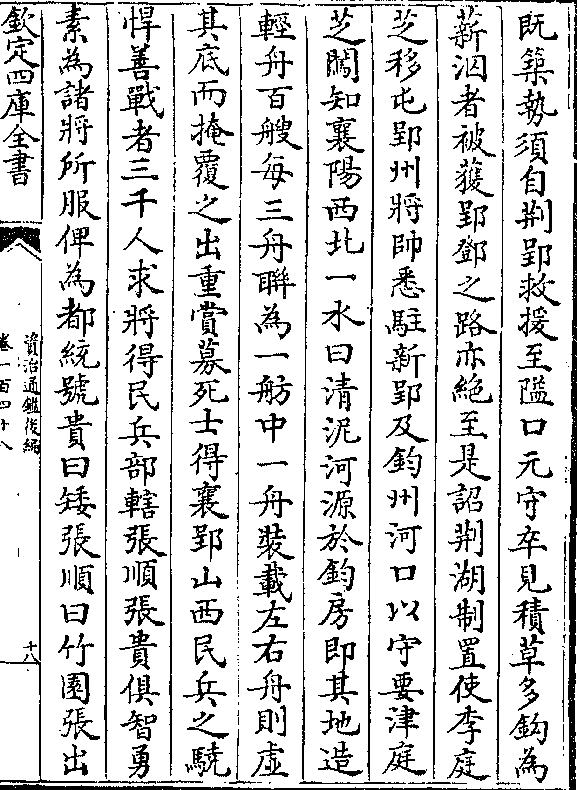 既築勢須自荆郢救援至隘口元守卒見積草多鈎為
薪洇者被獲郢鄧之路亦絶至是詔荆湖制置使李庭
芝移屯郢州將帥悉駐新郢及鈞州河口以守要津庭
芝闗知襄陽西北一水曰清泥河源於鈞房即其地造
輕舟百艘每三舟聨為一舫中一舟裝載左右舟則虚
其底而掩覆之出重賞募死士得襄郢山西民兵之驍
悍善戰者三千人求將得民兵部轄張順張貴俱智勇
素為諸將所服俾為都統號貴曰矮張順曰竹園張出
欽定四庫全書
資治通鑑後編
卷一百四十八
十八